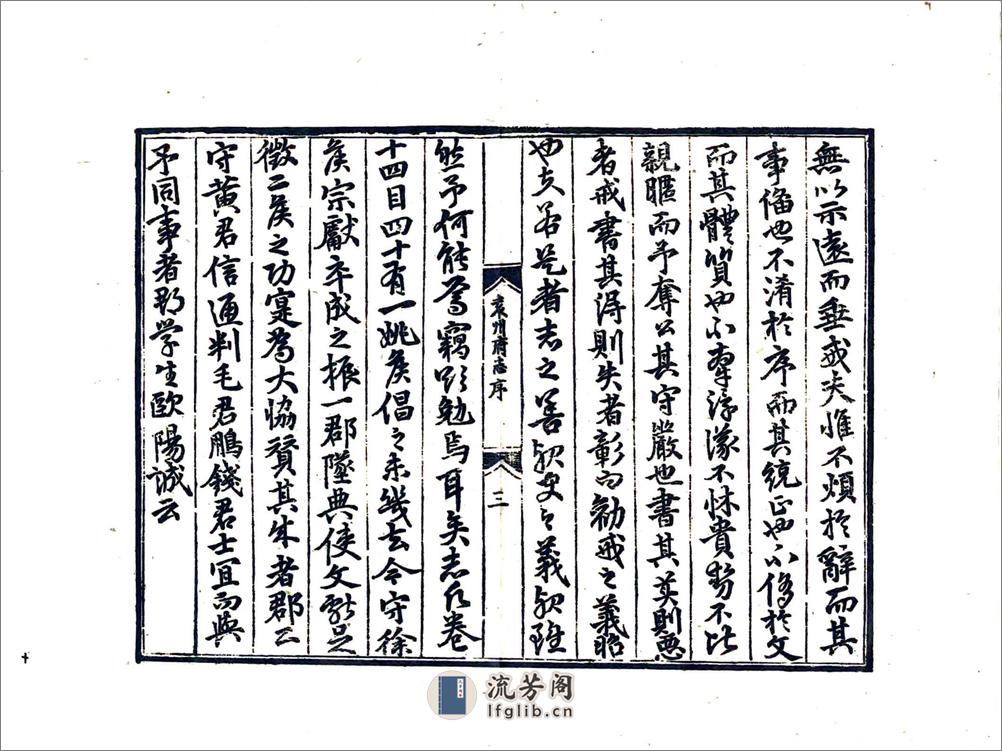 無以示遠而垂或夫惟不煩於辭而其
事備也不淆於序而其統正也不侈於文
而其體質也不牽浮議不怵貴勢不比
親暱而予奪公其守嚴也書其美則惡
者戒書其得則失者彰而勸戒之義昭
也夫若是者志之善歟史之義歟雖
然予何能為竊嘗勉焉耳矣志凡卷
十四目四十有一姚侯倡之未幾去今守徐
侯宗獻卒成之振一郡墜典使文獻足
徵二侯之功寔為大協贊其成者郡二
守黃君信通判毛君鵬錢君士宜而與
予同事者郡學生歐陽誠云
袁州府志序
三
流芳阁
lfglib.cn